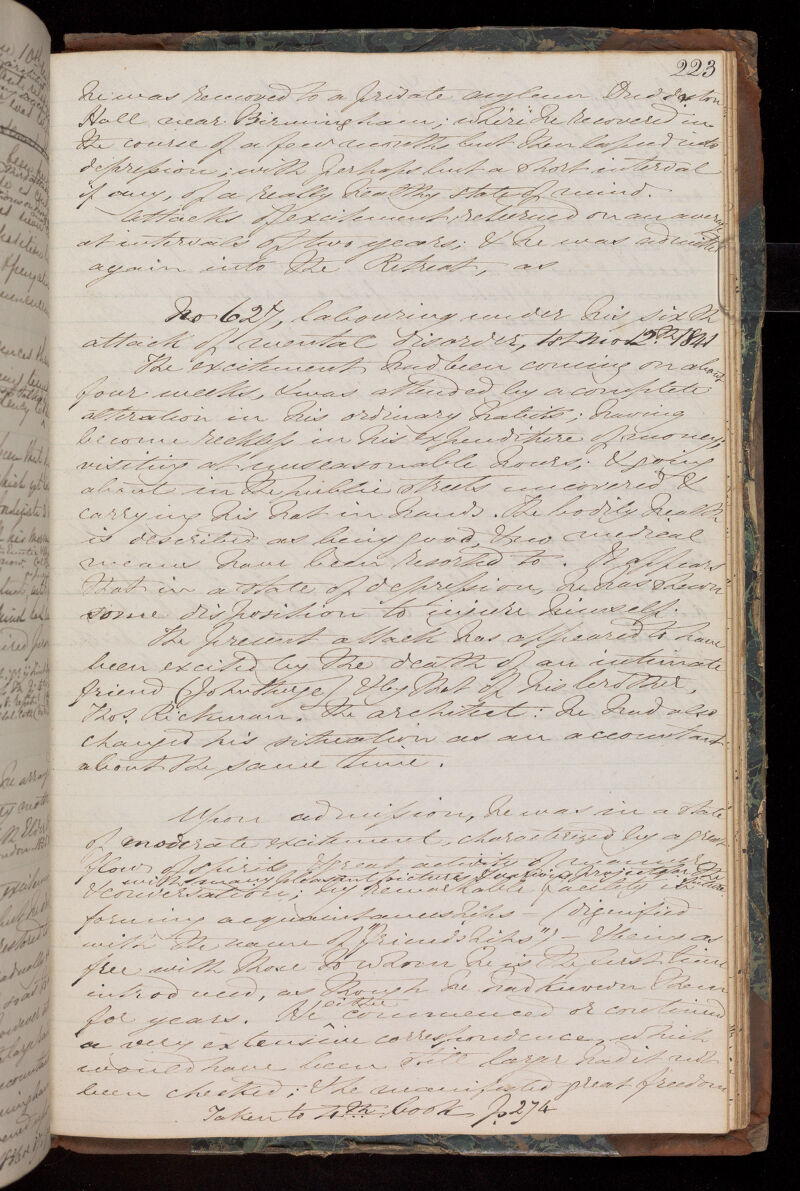 223
he was removed to a private asylum Duddeston
Hall near Birmingham; where he recovered in
the course of a few months but then lapsed into
depression; with perhaps but a short interval
if any, of a really healthy state of mind.
Attacks of excitement, returned on an average
at intervals of two years; & he was admitted
again into the Retreat, as
No 627, labouring under his sixth
attack of mental disorder, 1st mo 1841
The excitement had been coming on about
four weeks, & was attended by a complete
alteration in his ordinary habits; having
become reckless in his expenditure of money;
visiting at unseasonable hours; & going
about in the public streets uncovered &
carrying his hat in hand. The bodily health
is described as being good, & no medical
means have been resorted to. It appears
that in a state of depression, he has shewn
some disposition to injure himself.
The present attack has appeared to have
been excited by the death of an intimate
friend (John ) & by that of his brother,
Thos. Rickman. the architect: he had also
changed his situation as an accountant
about the same time.
Upon admission, he was in a state
of moderate excitement, characterized by a great
flow of spirits & great activity of manner
with many pleasant pictures & various projects for the future
& conversation; by remarkable facility in
forming acquaintanceships – (dignified
with the name of "friendships") – & being as
free with those to whom he is the first time
introduced, as though he had known them
for years. He either commenced or continued
a very extensive correspondence, which
would have been still larger had it not
been checked; & he manifested great freedom
Taken to 4th book p 274